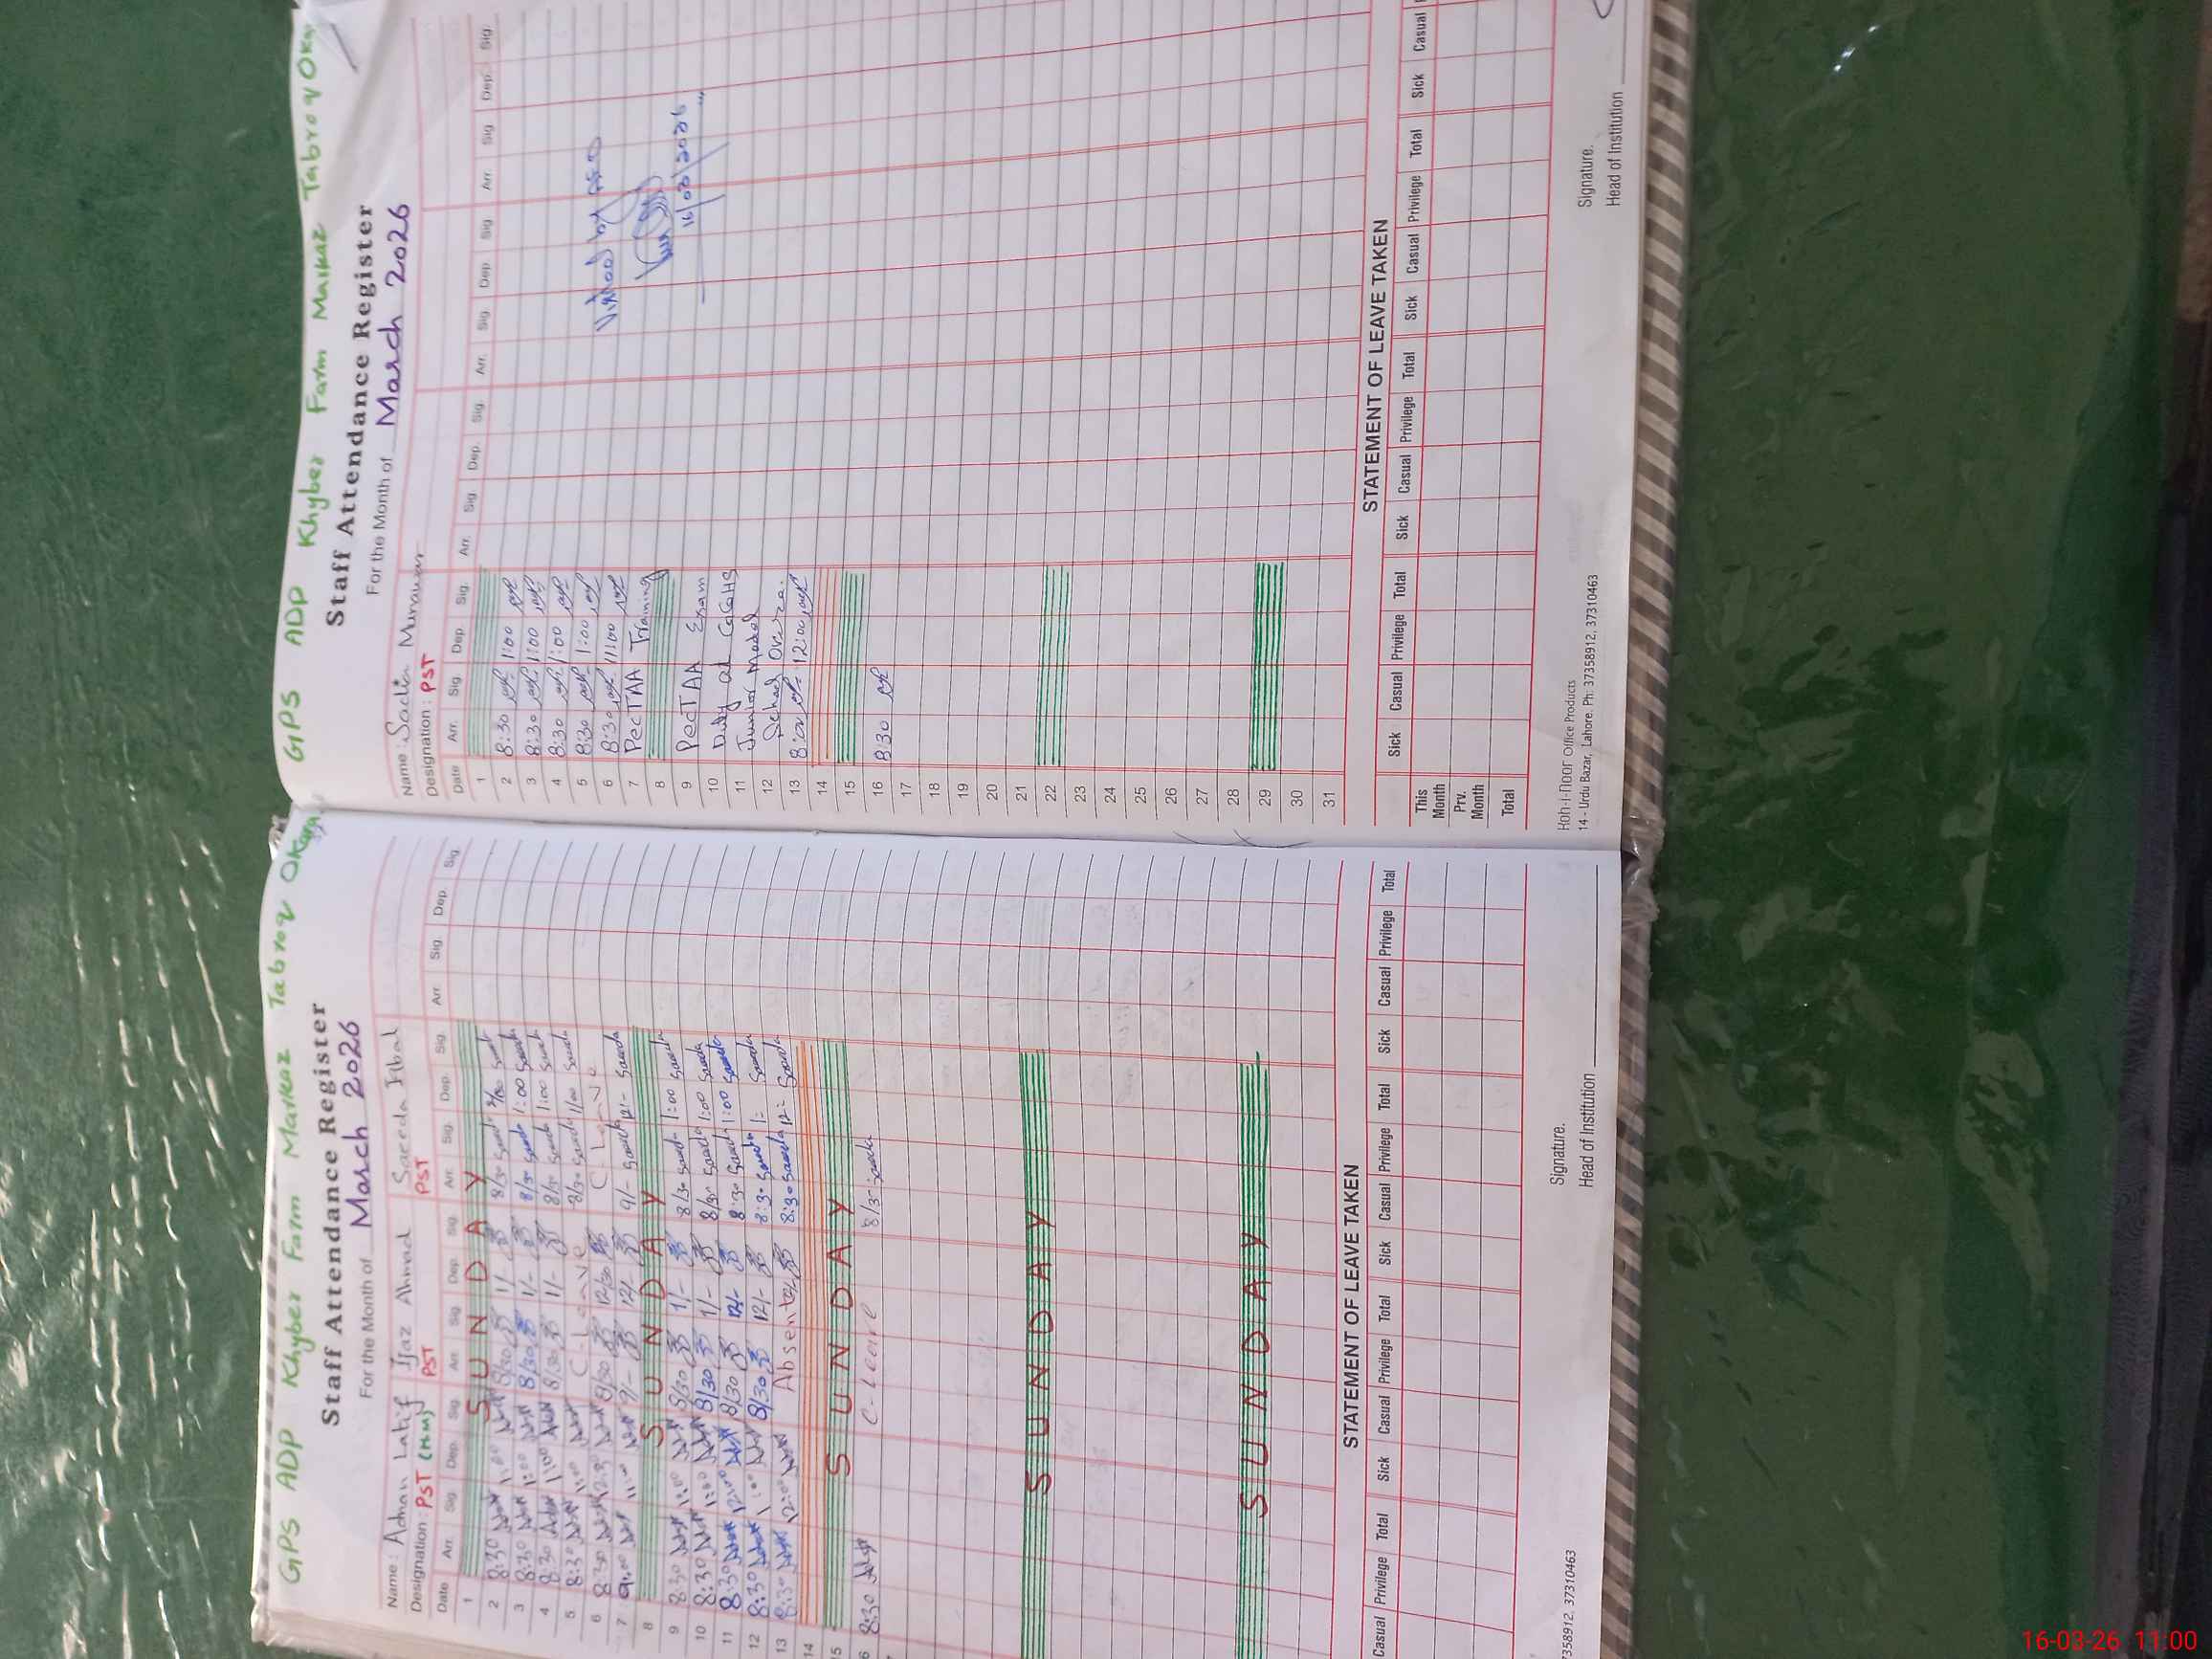 GPS ADP Khyber Farm Markaz Tabroq Okara
Staff Attendance Register
For the Month of March 2026
Name: Adnan Latif Ijaz Ahmad Saeeda Iqbal
Designation: PST PST PST
Date Arr. Sig Dep. Sig. Arr. Sig Dep. Sig. Arr. Sig. Dep. Sig Arr Sig. Dep. Sig.
1 SUNDAY
2 8:30 1:00 8/30 1/- 8/30
3 8:30 1:00 8/30 1/- 8/30 1:00
4 8:30 1:00 8/30 1/- 8/30 1:00
5 8:30 1:00 C-Leave 8/30 1/00
6 8:30 12:30 8/30 12/30 C-Leave
7 9:00 11:00 9/- 12/- 9/- Saeeda 12/- Saeeda
8 SUNDAY
9 8:30 1:00 8/30 1/- 8/30 Saeeda 1:00 Saeeda
10 8:30 1:00 8/30 1/- 8/30 Saeeda 1:00 Saeeda
11 8:30 12:00 8/30 12/- 8:30 Saeeda 1:00 Saeeda
12 8:30 1:00 8/30 12/- 8:30 Saeeda 1- Saeeda
13 8:30 12:00 Absent 8:30 Saeeda 12- Saeeda
14
15 SUNDAY
6 8:30 C-Leave 8/30 Saeeda
SUNDAY
SUNDAY
STATEMENT OF LEAVE TAKEN
Casual Privilege Total Sick Casual Privilege Total Sick Casual Privilege Total Sick Casual Privilege Total
Signature.
Head of Institution
7358912, 37310463
GPS ADP Khyber Farm Markaz Tabroq Oka
Staff Attendance Register
For the Month of March 2026
Name: Sadia Munawar
Designation: PST
Date Arr. Sig Dep Sig. Arr. Sig Dep. Sig. Arr. Sig Dep Sig Arr. Sig Dep. Sig.
1
2 8:30 1:00
3 8:30 1:00
4 8:30 1:00
5 8:30 1:00
6 8:30 11:00
7 PecTAA Training
8
9 PecTAA Exam
10 Duty at GGHS
11 Junior Model
12 School Okara.
13 8:00 12:00
14
15
16 8:30
17
18
19
20
21
22
23
24
25
26
27
28
29
30
31
16/03/2026
STATEMENT OF LEAVE TAKEN
Sick Casual Privilege Total Sick Casual Privilege Total Sick Casual Privilege Total Sick Casual
This Month
Prv. Month
Total
Koh-i-noor Office Products
14 - Urdu Bazar, Lahore. Ph: 37358912, 37310463
Signature.
Head of Institution
16-03-26 11:00